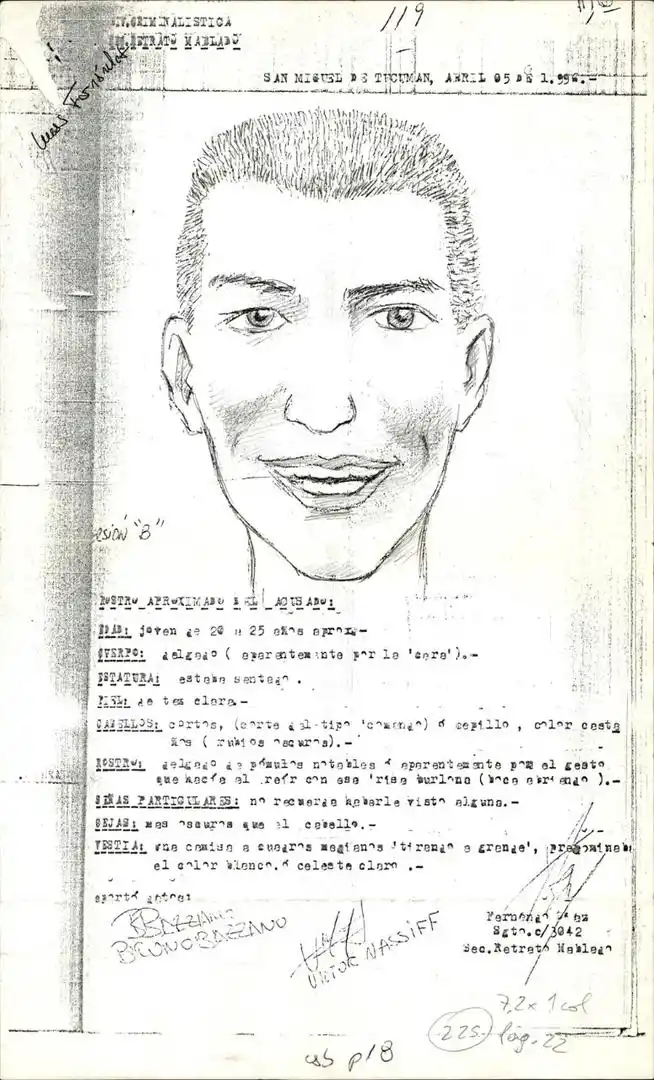 119
CRIMINALISTICA
RETRATO HABLADO
SAN MIGUEL DE TUCUMAN, ABRIL 05 DE 1.996.-
"B"
ROSTRO APROXIMADO DEL ACUSADO:
EDAD: joven de 20 a 25 años aprox.-
CUERPO: delgado ( aparentemente por la 'cara').-
ESTATURA: estaba sentado .
PIEL: de tez clara.-
CABELLOS: cortos, (corte del tipo 'comando) ó cepillo , color casta
ños ( rubios oscuros).-
ROSTRO: delgado de pómulos notables ó aparentemente por el gesto
que hacía al reír con esa 'risa burlona (boca abriendo ).-
SEÑAS PARTICULARES: no recuerda haberle visto alguna.-
CEJAS: mas oscuros que el cabello.-
VESTIA: una camisa a cuadros medianos 'tirando a grande', predomina
el color blanco.ó celeste claro .-
aportó datos:
BAZZANO
BRUNO BAZZANO
VICTOR NASSIFF
Fernando
Sgto.c/3042
Sec.Retrato Hablado
7,2 x 1 col
225. pág. 22
p/8